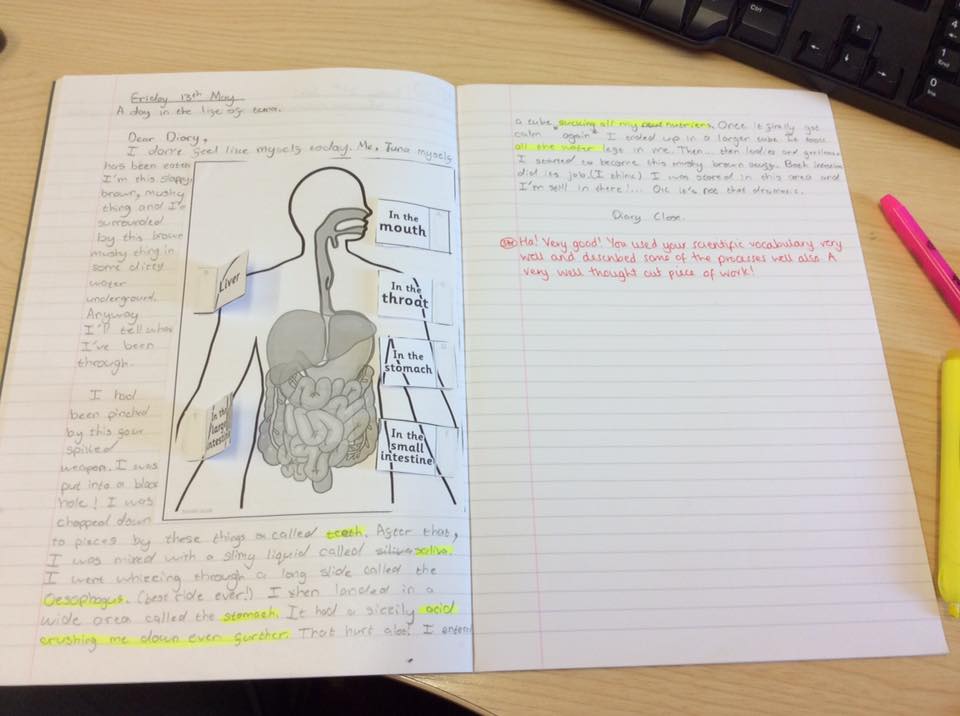 Friday 13th May
A day in the life of tuna.
Dear Diary,
I don't feel like myself today. Me, Tuna myself
has been eaten
I'm this sloppy,
brown, mushy
thing and I'm
surrounded
by this brown
mushy thing in
some dirty
water
underground.
Anyway
I'll tell what
I've been
through.
I had
been pinched
by this four
spiked
weapon. I was
put into a black
hole! I was
chopped down
to pieces by these things called teeth. After that,
I was mixed with a slimy liquid called saliva.
I went whizzing through a long slide called the
Oesophagus. (best ride ever!) I then landed in a
wide area called the stomach. It had a acid
crushing me down even further. That hurt alot! I entered
In the
mouth
In the
throat
In the
stomach
In the
small
intestine
Liver
In the
large
intestine
a tube sucking all my nutriens. Once it finally got
calm "again" I ended up in a larger tube. It took
all the water left in me. Then... then ladies and gentlemen
I started to become this mushy brown stuff. Both intestine
did its job. (I think) I was stored in this area and
I'm still in there!... Ok it's not that dramatic.
Diary Close.
Ha! Very good! You used your scientific vocabulary very
well and described some of the processes well also. A
very well thought out piece of work!
Ctrl
4
1
End
0
Ins